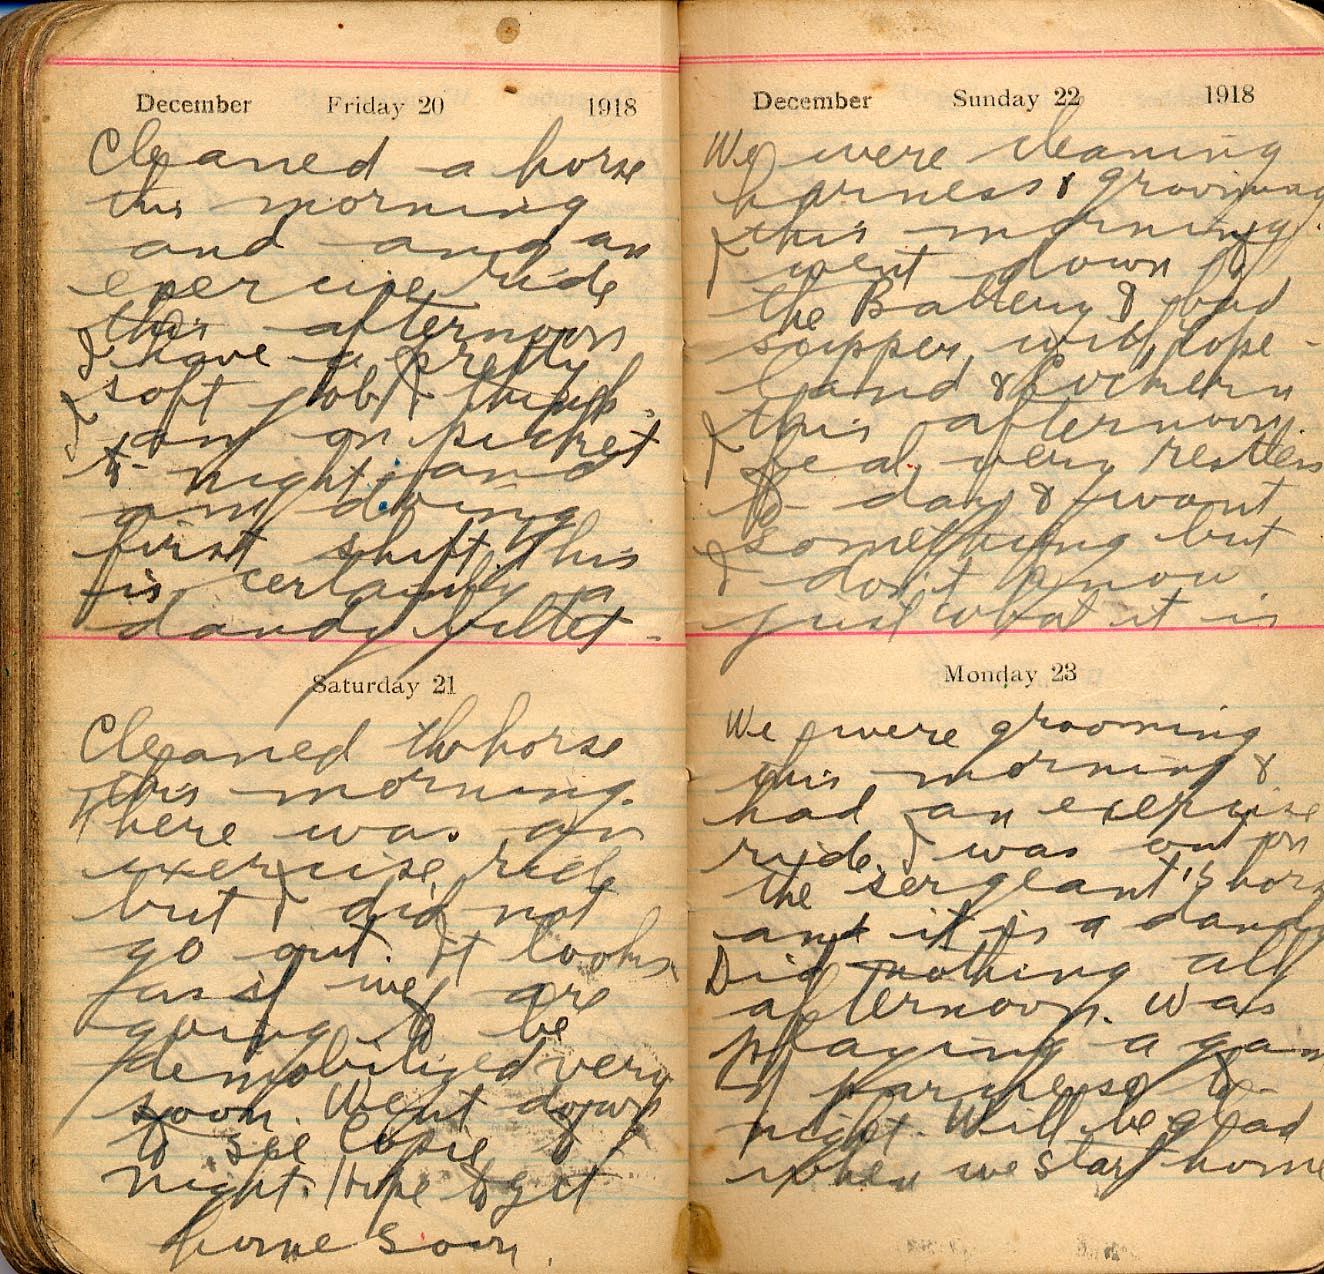 December Friday 20 1918
Cleaned a horse
this morning
and and an
exercise ride
this afternoon
I have a pretty
soft job I think.
I am on picket
to-night and
am doing
first shift. This
is certainly a
dandy billet.
Saturday 21
Cleaned the horse
this morning.
There was an
exercise ride
but I did not
go out. It looks
as if we are
going to be
demobilized very
soon. Went down
to see to
night. Hope to get
home soon.
December Sunday 22 1918
We were cleaning
harness & grooming
this morning.
I went down to
the Battery & had
supper with Cope-
land &
this afternoon.
I feal very restless
to-day & want
something but
I don't know
just what it is
Monday 23
We were grooming
this morning &
had an exercise
ride. I was out on
the sergeant's horse
and it is a dandy
Did nothing all
afternoon. Was
playing a game
of to-
night. Will be glad
when we start home